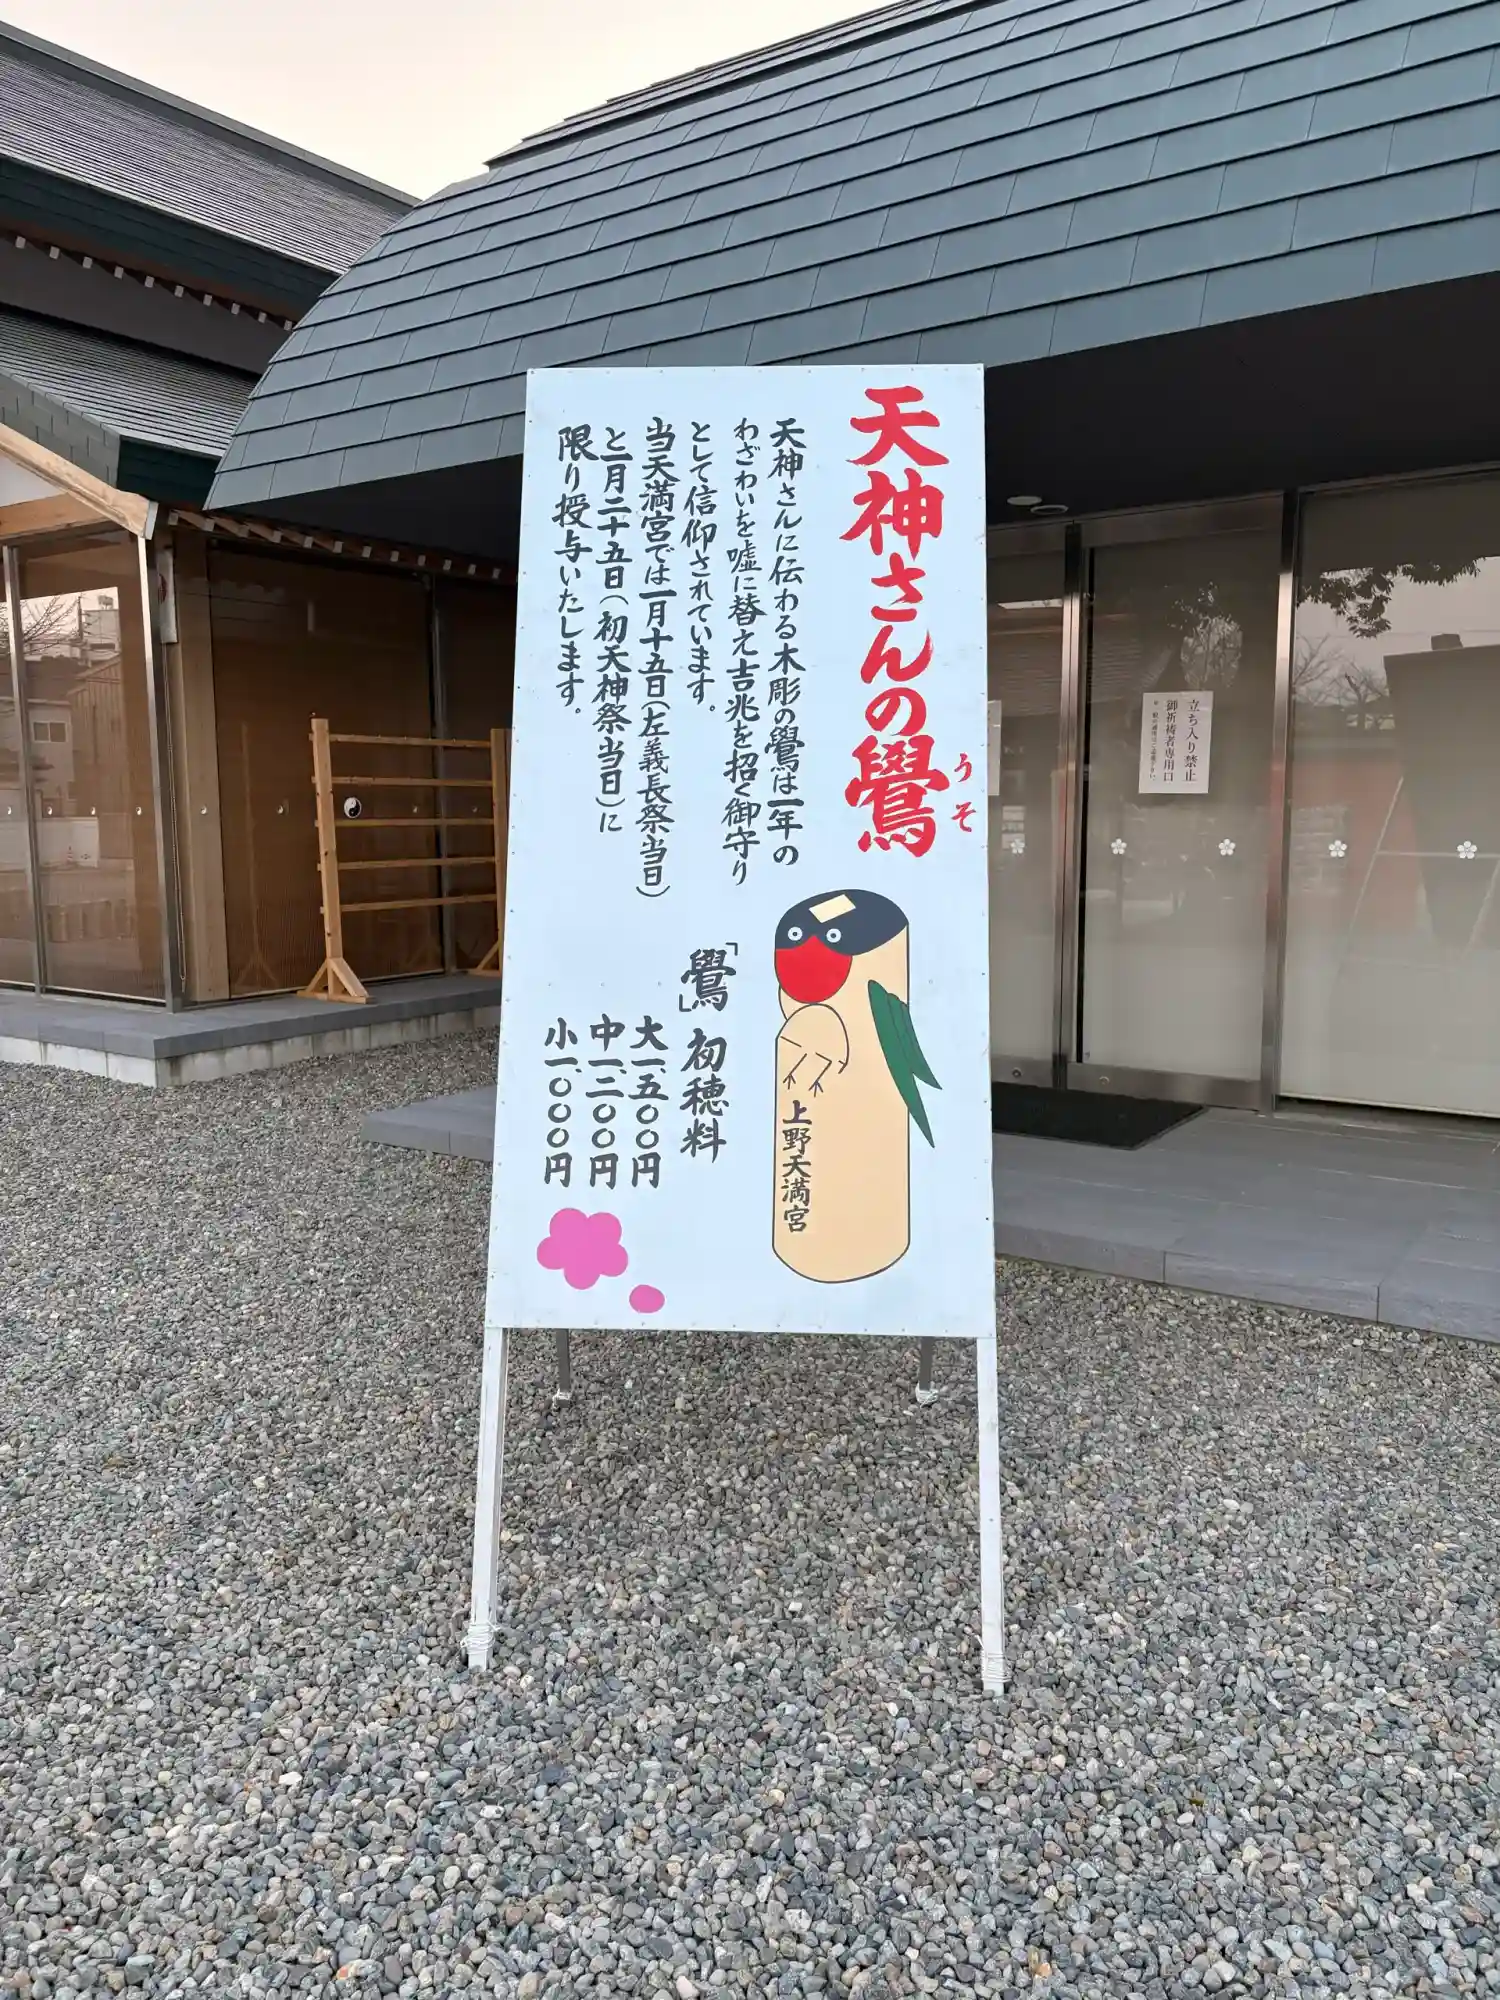 天神さんの鷽
うそ
天神さんに伝わる木彫の鷽は一年の
わざわいを嘘に替え吉兆を招く御守り
として信仰されています。
当天満宮では一月十五日(左義長祭当日)
と二月二十五日(初天神祭当日)に
限り授与いたします。
「鷽」初穂料
大一、五〇〇円
中一、二〇〇円
小一、〇〇〇円
上野天満宮
立ち入り禁止
御祈祷者専用口